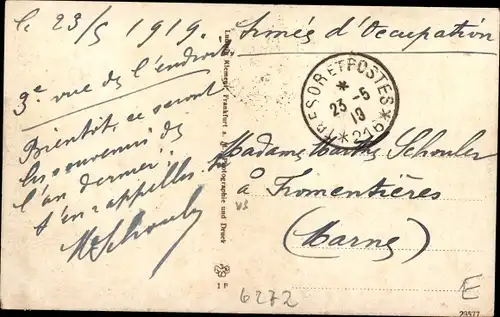 le 23/5 1919.
Armée d'Occupation
3e vue de l'endroit.
Bientôt, ce seront
les souvenirs de
l'an dernier.
t'en rappelles
M Schouler
Ludwig Klement, Frankfurt a. Photographie und Druck
1 F
*TRESOR ET POSTES*
*
23-5
19
Madame Marthe Schouler
à Fromentières
(Marne)
6272
E
29577